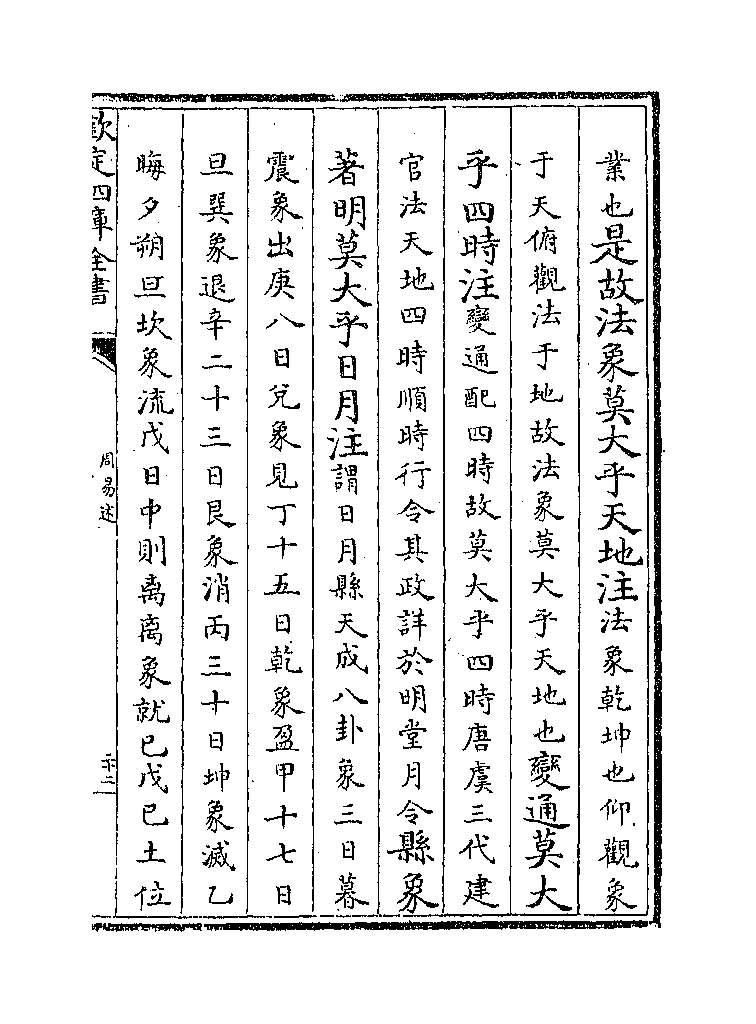 業也是故法象莫大乎天地注法象乾坤也仰觀象
于天俯觀法于地故法象莫大乎天地也變通莫大
乎四時注變通配四時故莫大乎四時唐虞三代建
官法天地四時順時行令其政詳於明堂月令縣象
著明莫大乎日月注謂日月縣天成八卦象三日暮
震象出庚八日兌象見丁十五日乾象盈甲十七日
旦巽象退辛二十三日艮象消丙三十日坤象滅乙
晦夕朔旦坎象流戊日中則离离象就巳戊巳土位
欽定四庫全書
周易述